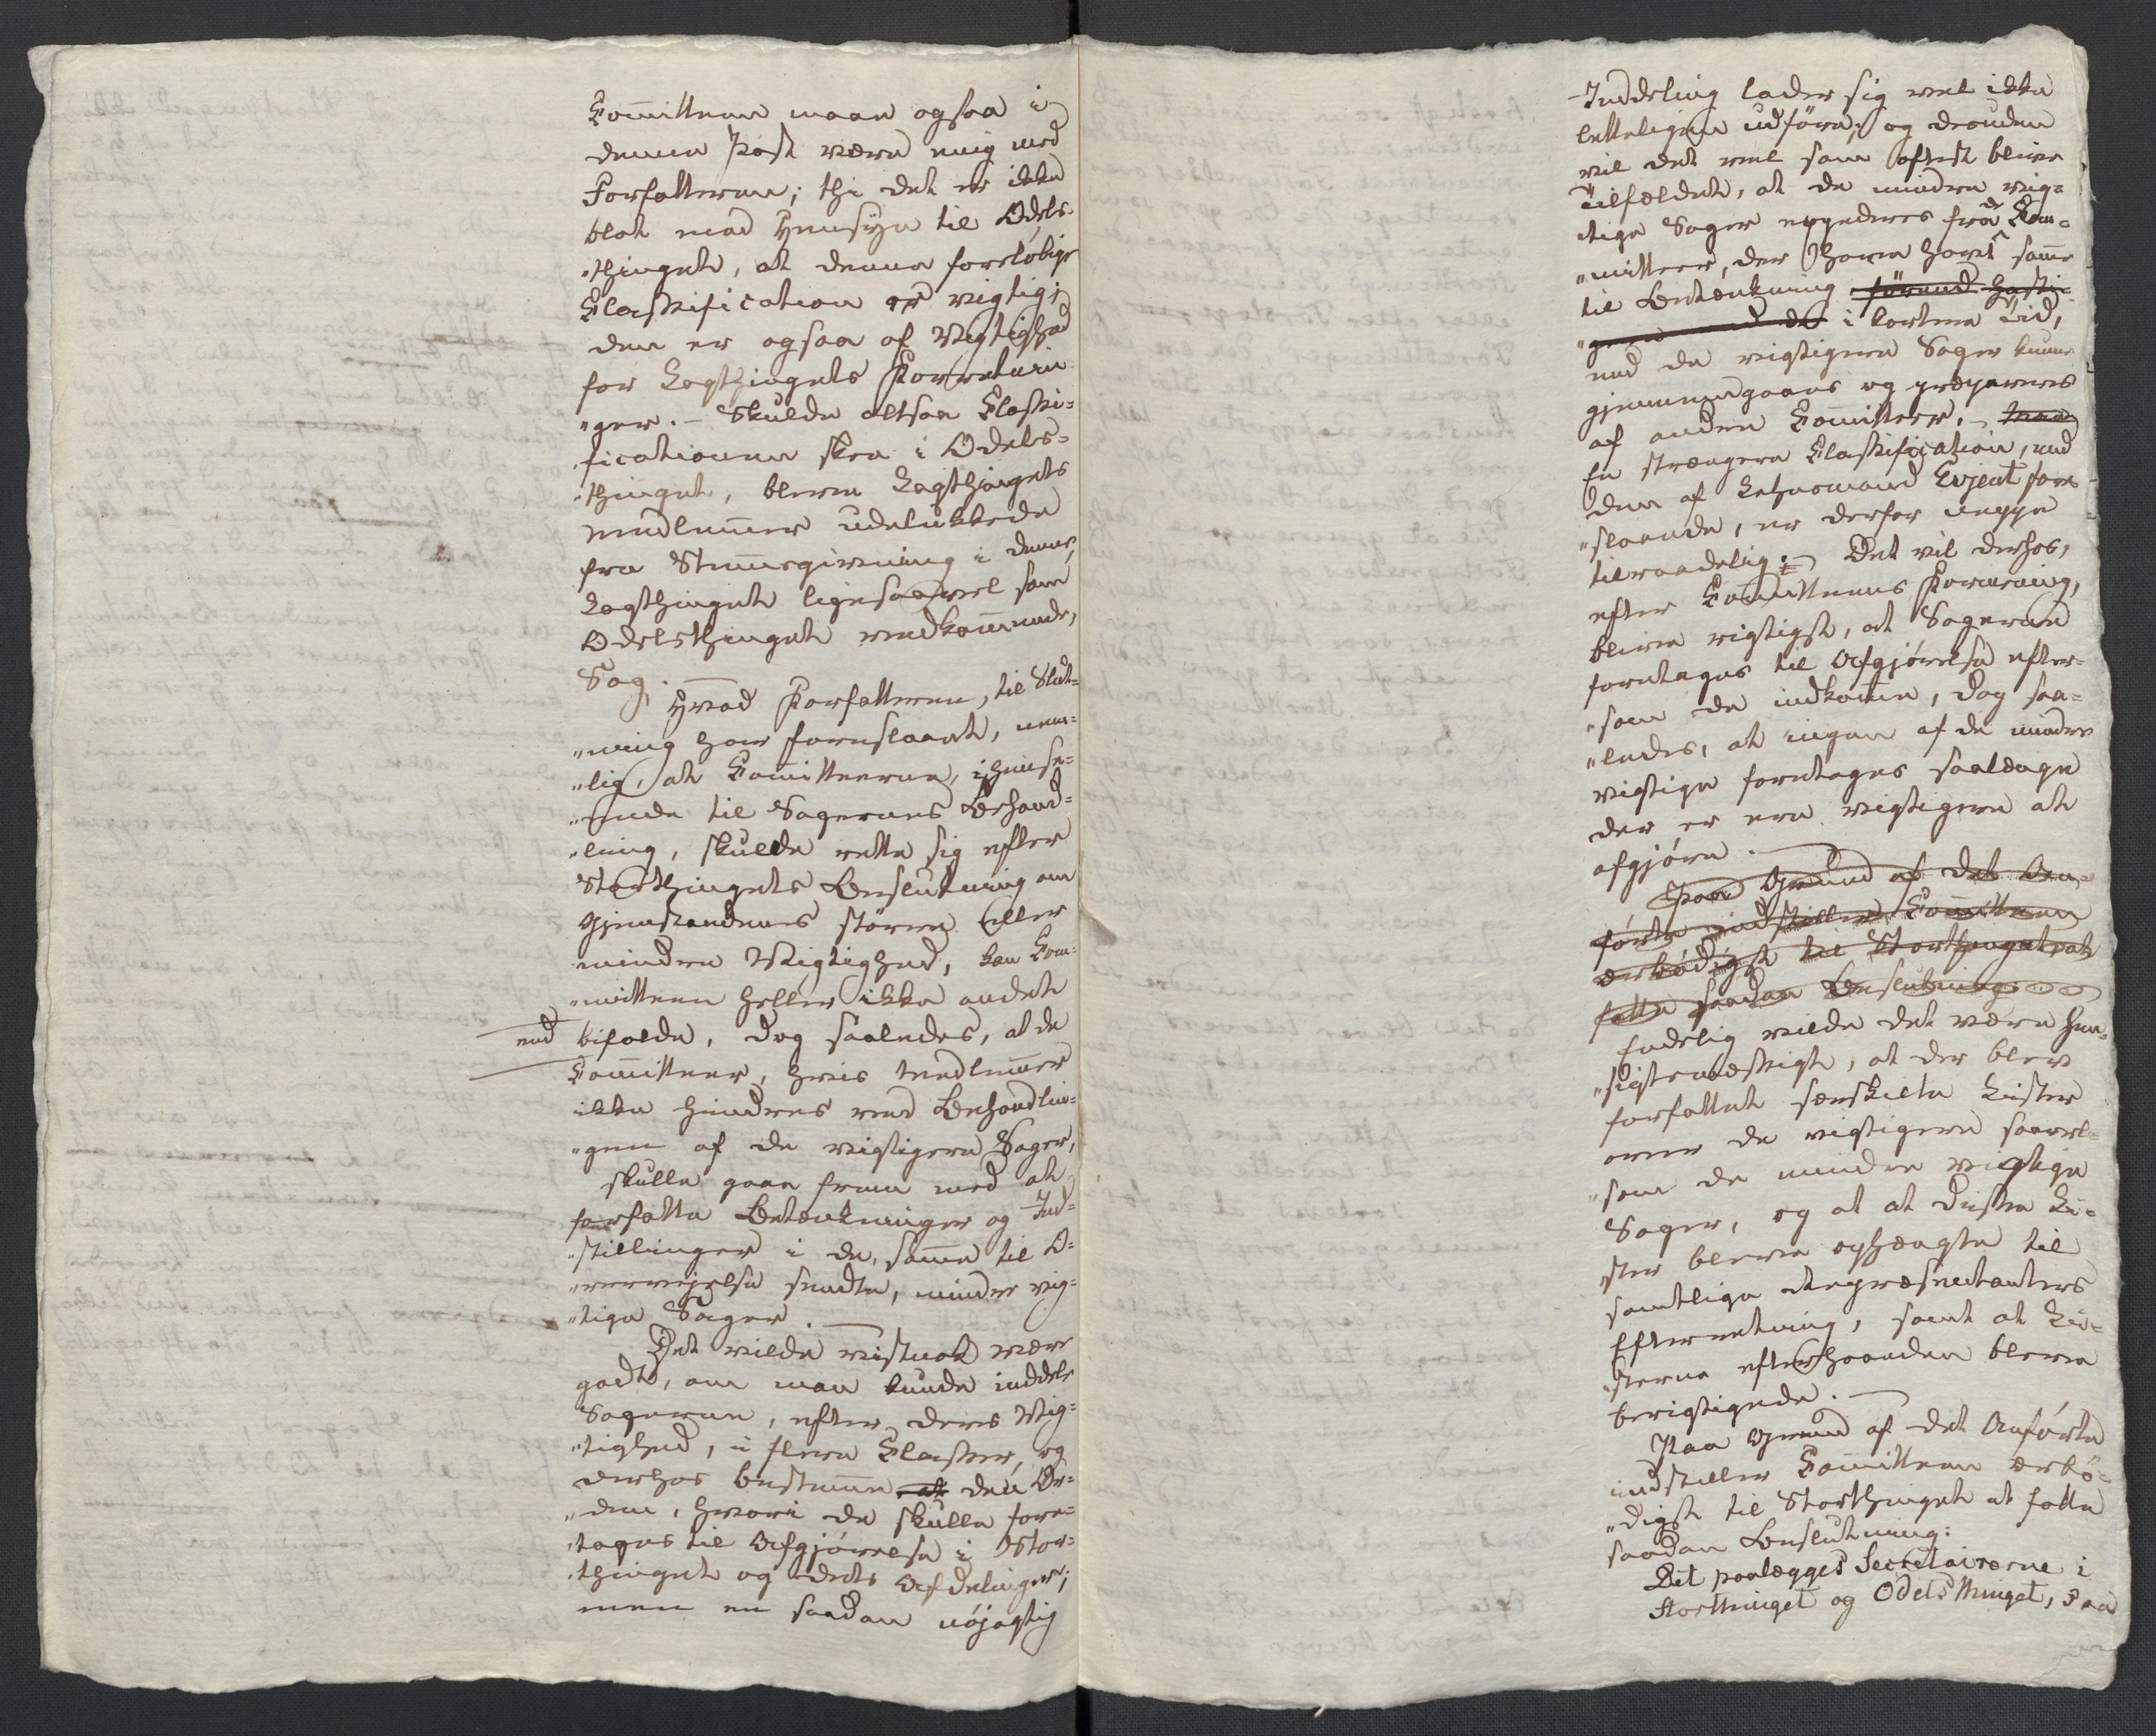 Committeen maae ogsaa i
denne Post være enig med
Forfatteren; thi det er ikke
blot med Hensyn til Odels-
"thinget, at denne foreløbige
Classification er vigtig;
den er ogsaa af Vigtighed
for Lagthingets Forretnin-
"ger. – Skulde altsaa Classi=
ficationen skee i Odels=
"thinget, bleve Lagthingets
Medlemmer udelukkede
fra Stemmegivning i denne,
Lagthinget ligesaavel som
Odelsthinget vedkommende,
Sag. —
Hvad Forfatteren, til Slut=
"ning har foreslaaet, nem=
"lig, at Committeerne, i Hense=
"ende til Sagernes Behand=
"ling, skulde rette sig efter
Storthingets Beslutning om
Gjenstandenes större eller
mindre Vigtighed, kan Com=
"mitteen heller ikke andet
end bifalde, dog saaledes, at de
Committeer, hvis Medlemmer
ikke hindres ved Behandlin=
"gen af de vigtigere Sager,
skulle gaae frem med at
forfatte Betænkninger og Ind=
"stillinger i de, samme til O=
"vervejelse sendte, mindre vig=
"tige Sager. —
Det vilde vistnok være
godt, om man kunde inddele
Sagerne, efter deres Vig=
"tighed, i flere Classer, og
derhos bestemme at den Or=
"den, hvori de skulle fore=
"tages til Afgjörelse i Stor=
"thinget og dets Afdelinger;
men en saadan nöjagtig
Inddeling lader sig vel ikke
letteligen udföre; og desuden
vil det vel som oftest blive
Tilfældet, at de mindre vig=
"tige Sager expederes fra de Com=
"mitteer, der have havt samme
til Betænkning förend hasti=
"gere end de i kortere Tid,
end de vigtigere Sager kunne
gjennemgaaes og præpareres
af anden Committeer. –
En strængere Classification, end
den af Lehnsmand Evjent fore=
"slaaede, er derfor neppe
tilraadelig; Det vil derhos,
efter Committeens Formening,
blive rigtigst, at Sagerne
foretages til Afgjörelse efter=
"som de indkomme, dog saa=
"ledes, at ingen af de mindre
vigtige foretages saalænge
der er een vigtigere at
afgjöre. —
Paa Grund af det An=
förte indstiller Committeen
ærbödigst til Storthinget at
fatte saadan Beslutning:
Endelig vilde det være hen=
"sigtsmæssigt, at der blev
forfattet særskilte Lister
over de vigtigere saavel=
"som de mindre vigtige
Sager, og at at disse Li=
"ster bleve ophængte til
samtlige Repræsentanters
Efterretning, samt at Li=
"sterne efterhaanden bleve
berigtigede. —
Paa Grund af det Anförte
indstiller Committeen ærbö=
"digst til Storthinget at fatte
saadan Beslutning:
Det paalægges Secretairerne i
Storthinget og Odelsthinget, paa